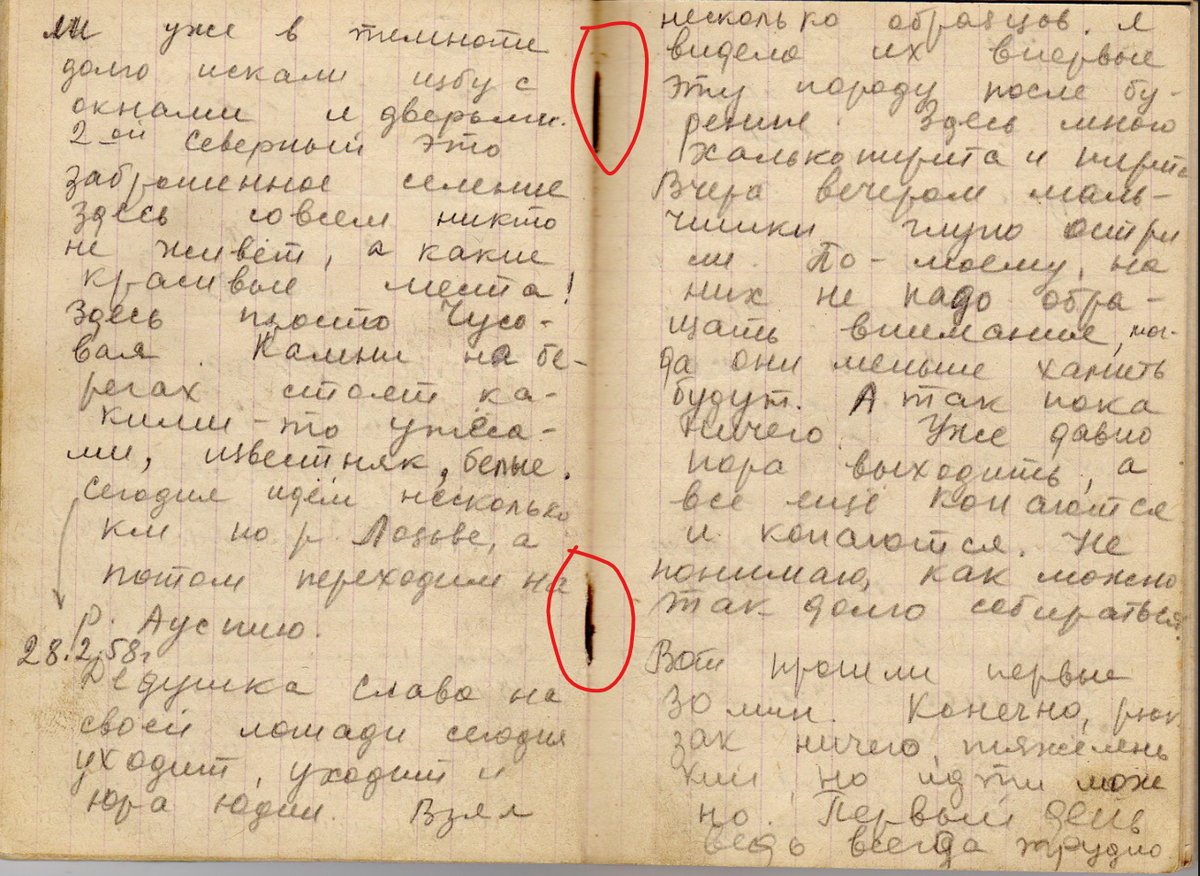 ли уже в темноте
долго искали избу с
окнами и дверьми.
2-ой Северный это
заброшенное селение
здесь совсем никто
не живёт, а какие
красивые места!
Здесь просто Чусо-
вая. Камни на бе-
регах стоят ка-
кими-то утёса-
ми, известняк, белые.
Сегодня идём несколько
км по р. Лозьве, а
потом переходим на
р. Ауспию.
28.2.58г
Дедушка Слава на
своей лошади сегодня
уходит, уходит и
Юра Юдин. Взял
несколько образцов. Я
видела их впервые
эту породу после бу-
рения. Здесь много
халькопирита и пирита
Вчера вечером маль-
чишки глупо остри
ли. По-моему, на
них не надо обра-
щать внимание, тог-
да они меньше хамить
будут. А так пока
ничего. Уже давно
пора выходить, а
все ещё копаются
и копаются. Не
понимаю, как можно
так долго собираться.
Вот прошли первые
30 мин. Конечно, рюк
зак ничего, тяжелень
кий, но идти мож
но. Первый день
ведь всегда трудно